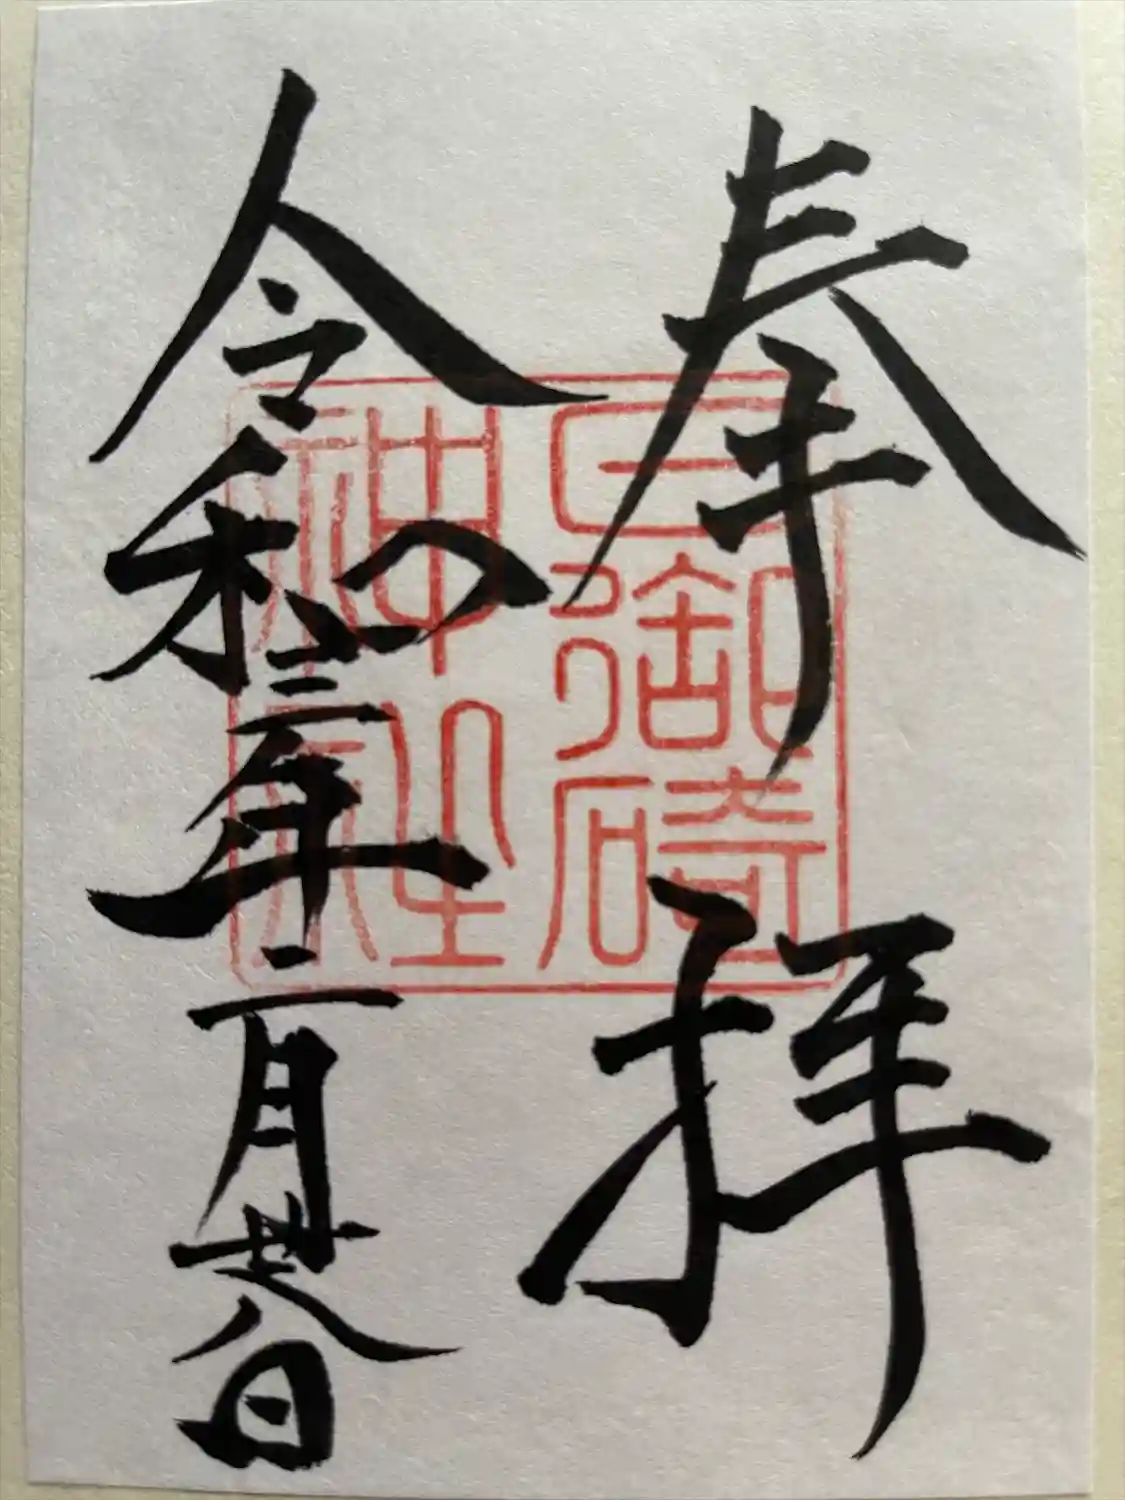 奉拝
日御碕
神社
令和三年二月廿八日